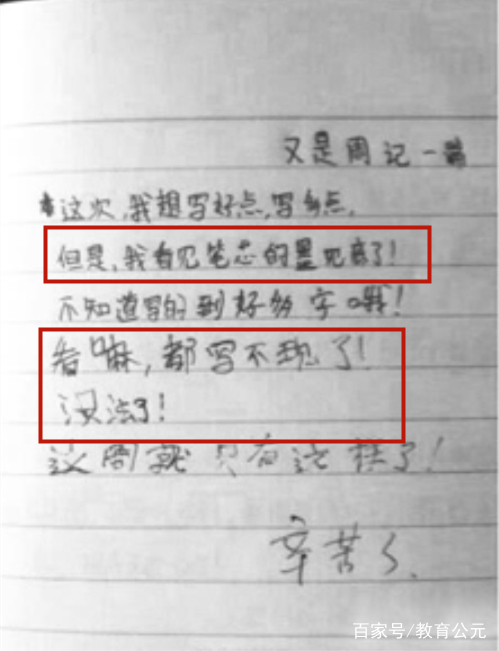 又是周记一篇
这次,我想写好点,写多点.
但是,我看见笔芯的墨见底了!
不知道写的到好多字哦!
看嘛,都写不现了!
没法了!
这周就只有这样了!
辛苦了.
百家号/教育公元